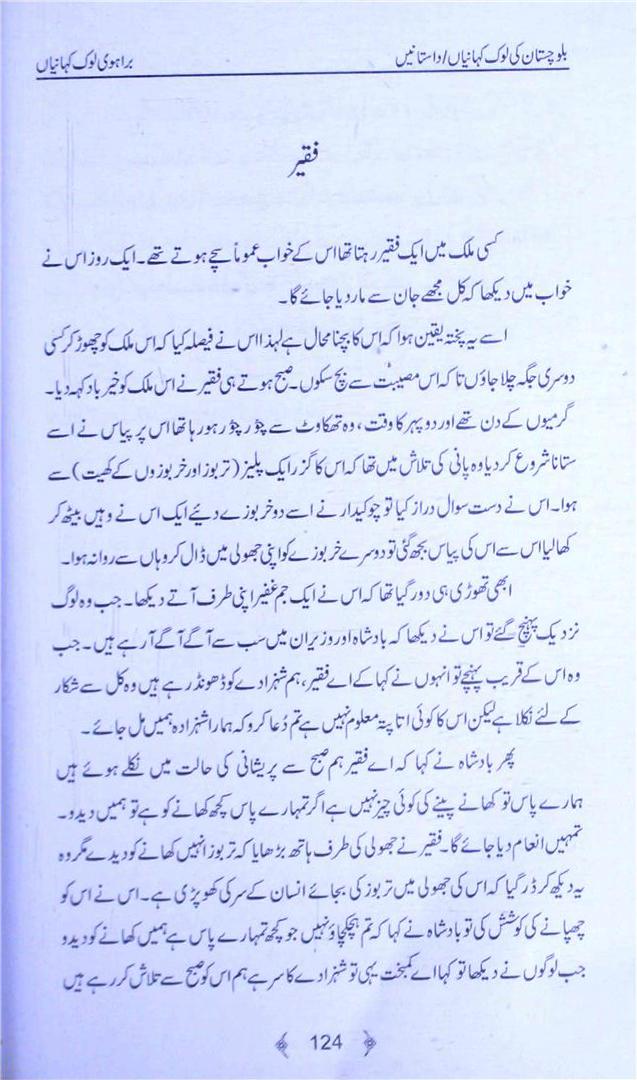 بلوچستان کی لوک کہانیاں/داستانیں
براہوی لوک کہانیاں
فقیر
کسی ملک میں ایک فقیر رہتا تھا اس کے خواب عموماً سچے ہوتے تھے۔ ایک روز اس نے
خواب میں دیکھا کہ کل مجھے جان سے مار دیا جائے گا۔
اسے یہ پختہ یقین ہوا کہ اس کا بچنا محال ہے لہٰذا اس نے فیصلہ کیا کہ اس ملک کو چھوڑ کر کسی
دوسری جگہ چلا جاؤں تا کہ اس مصیبت سے بچ سکوں۔ صبح ہوتے ہی فقیر نے اس ملک کو خیر باد کہہ دیا۔
گرمیوں کے دن تھے اور دوپہر کا وقت، وہ تھکاوٹ سے چُور چُور ہو رہا تھا اس پر پیاس نے اسے
ستانا شروع کر دیا وہ پانی کی تلاش میں تھا کہ اس کا گزر ایک پلیز (تربوز اور خربوزوں کے کھیت) سے
ہوا۔ اس نے دست سوال دراز کیا تو چوکیدار نے اسے دو خربوزے دیئے ایک اس نے وہیں بیٹھ کر
کھا لیا اس سے اس کی پیاس بجھ گئی تو دوسرے خربوزے کو اپنی جھولی میں ڈال کر وہاں سے روانہ ہوا۔
ابھی تھوڑی ہی دور گیا تھا کہ اس نے ایک جم غفیر اپنی طرف آتے دیکھا۔ جب وہ لوگ
نزدیک پہنچ گئے تو اس نے دیکھا کہ بادشاہ اور وزیر ان میں سب سے آگے آگے آ رہے ہیں۔ جب
وہ اس کے قریب پہنچے تو انہوں نے کہا کے اے فقیر، ہم شہزادے کو ڈھونڈ رہے ہیں وہ کل سے شکار
کے لئے نکلا ہے لیکن اس کا کوئی اتا پتہ معلوم نہیں ہے تم دُعا کرو کہ ہمارا شہزادہ ہمیں مل جائے۔
پھر بادشاہ نے کہا کہ اے فقیر ہم صبح سے پریشانی کی حالت میں نکلے ہوئے ہیں
ہمارے پاس تو کھانے پینے کی کوئی چیز نہیں ہے اگر تمہارے پاس کچھ کھانے کو ہے تو ہمیں دیدو۔
تمہیں انعام دیا جائے گا۔ فقیر نے جھولی کی طرف ہاتھ بڑھایا کہ تربوز انہیں کھانے کو دیدے مگر وہ
یہ دیکھ کر ڈر گیا کہ اس کی جھولی میں تربوز کی بجائے انسان کے سر کی کھوپڑی ہے۔ اس نے اس کو
چھپانے کی کوشش کی تو بادشاہ نے کہا کہ تم ہچکچاؤ نہیں جو کچھ تمہارے پاس ہے ہمیں کھانے کو دیدو
جب لوگوں نے دیکھا تو کہا اے کمبخت یہی تو شہزادے کا سر ہے ہم اس کو صبح سے تلاش کر رہے ہیں
124